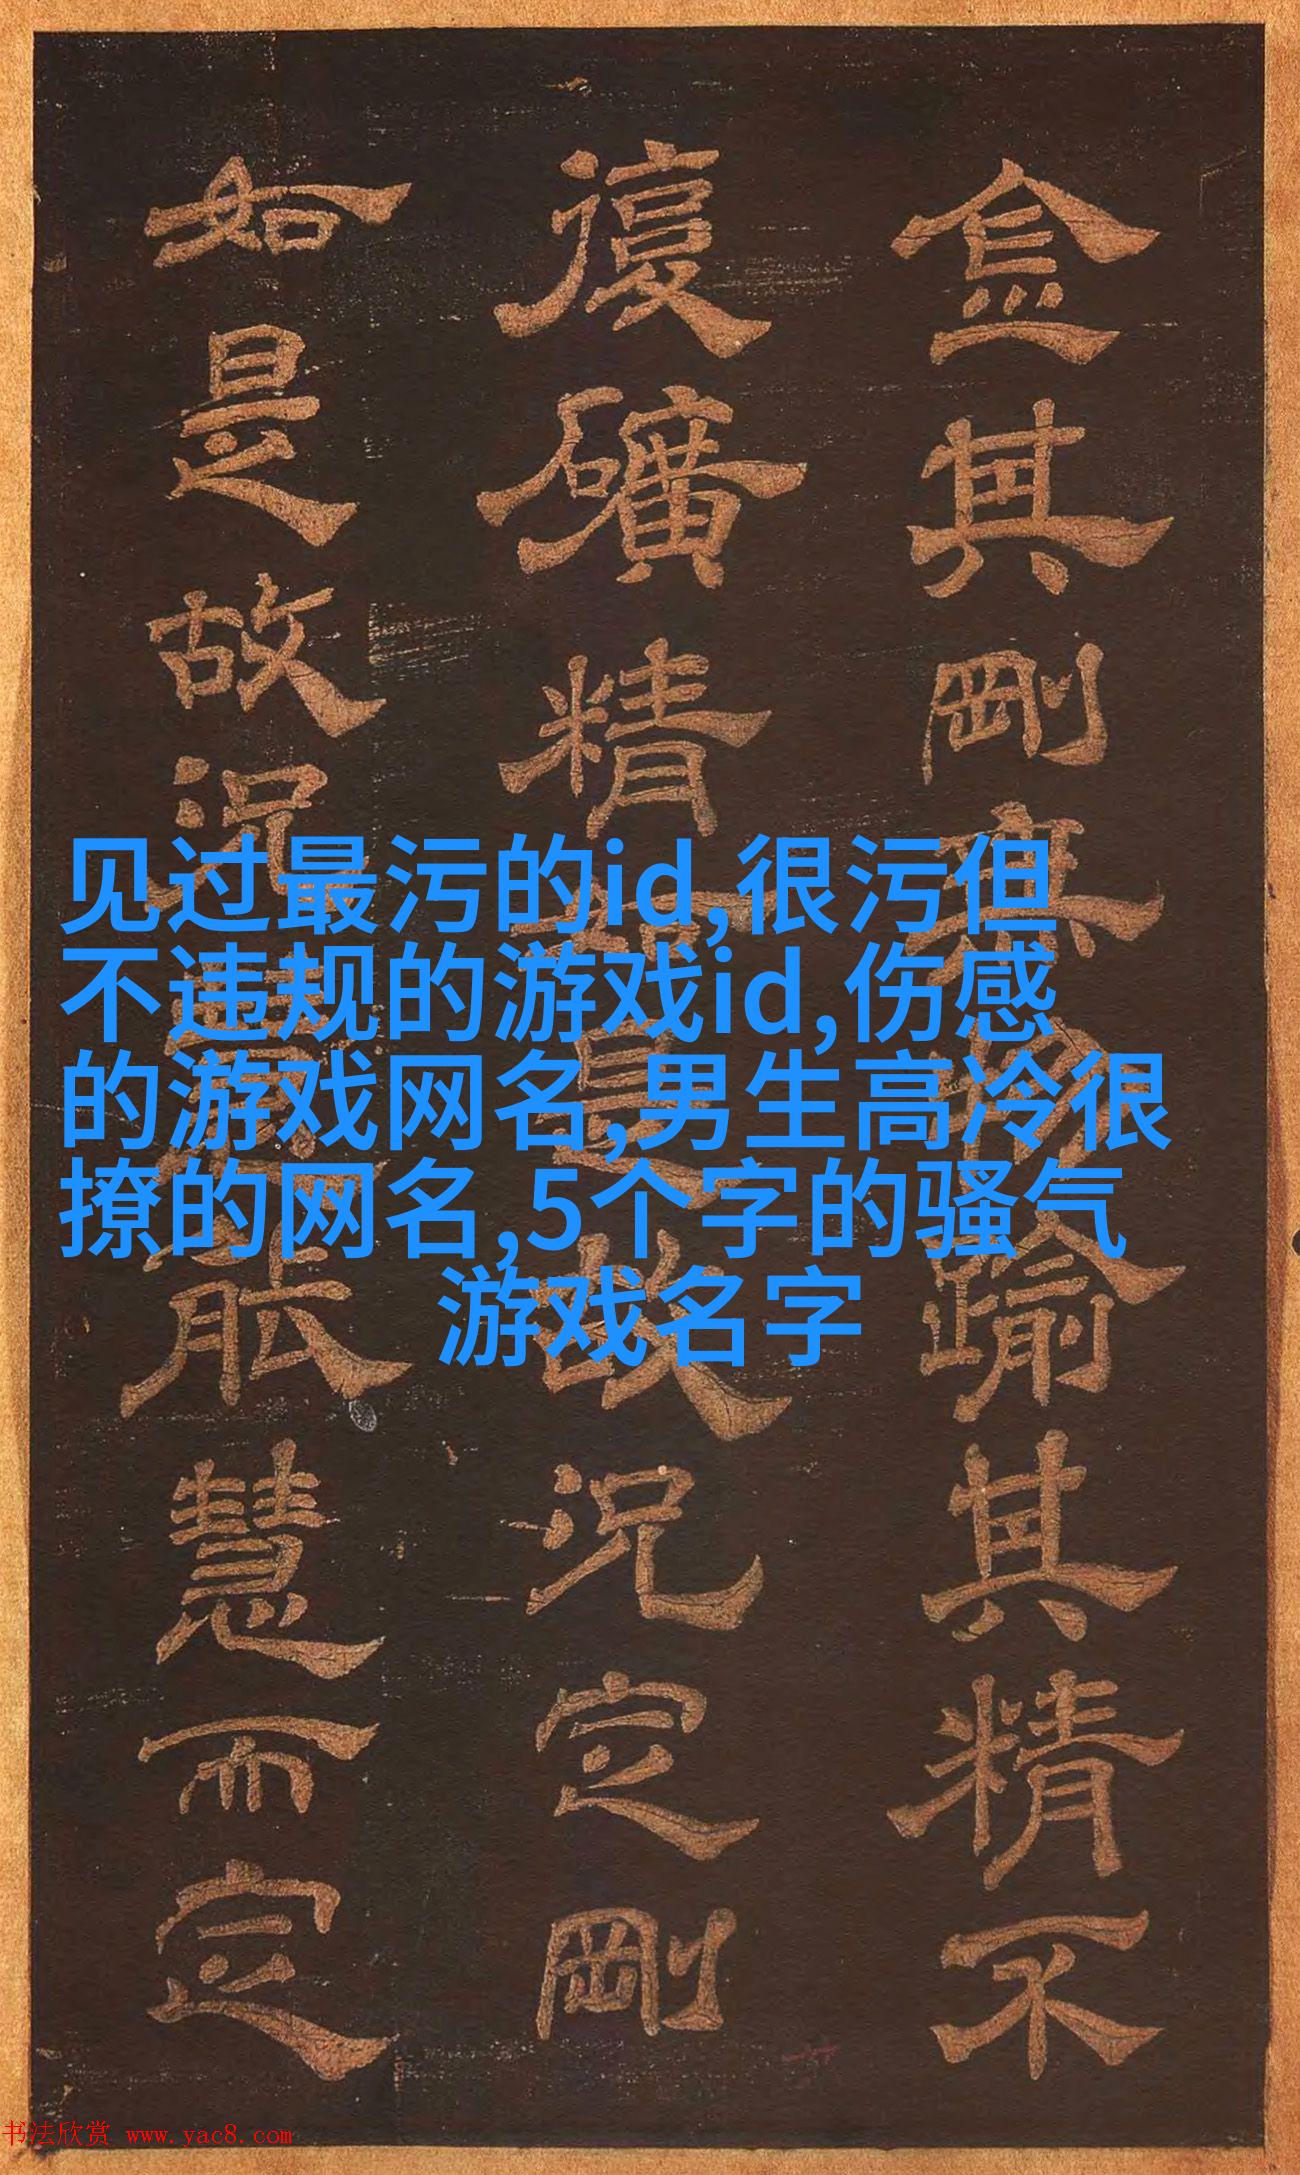 金其剛無物踰其精不
復礦精
故況定剛
如是故況
能慧而定
见过最污的id,很污但
不违规的游戏id,伤感
的游戏网名,男生高冷很
撩的网名,5个字的骚气
游戏名字
书法欣赏 www.yac8.com